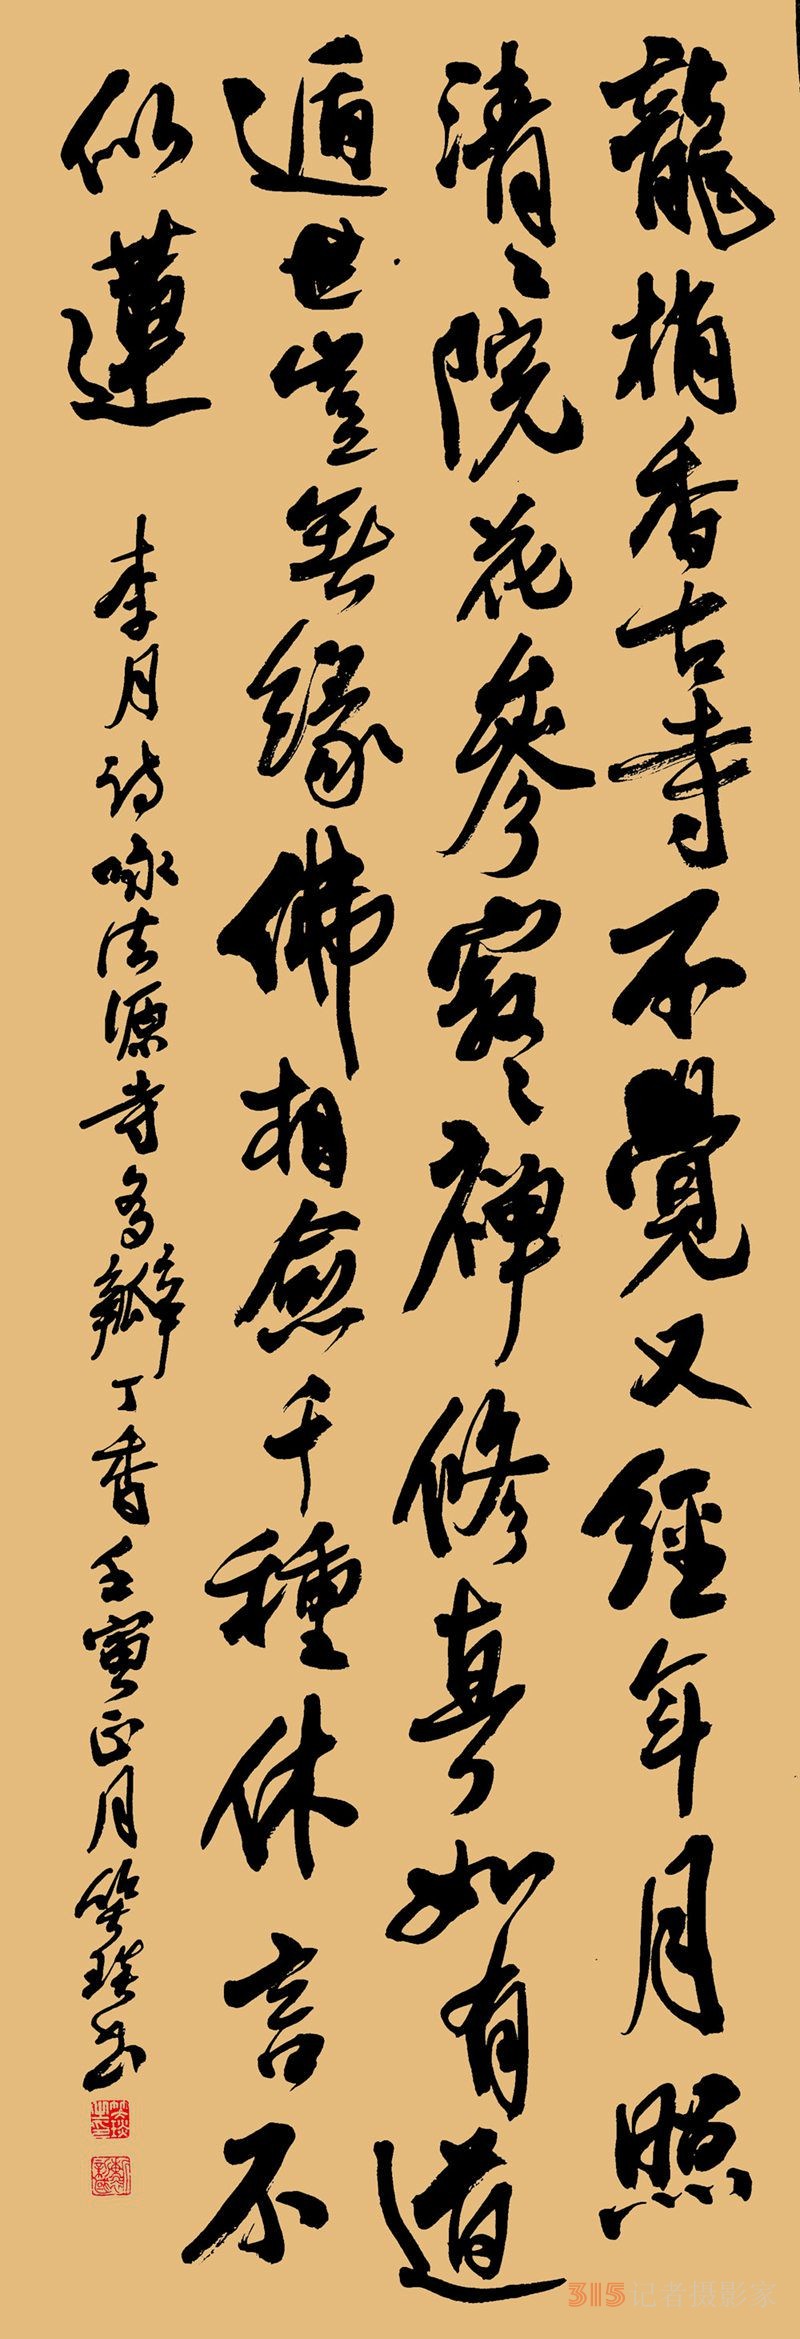 龍梢香古寺不覺又經年月照
清々院花參寂々禪修真如有道
遁世豈無緣佛相僉千種休言不
似蓮
李月詩詠法源寺多瓣丁香壬寅正月笑琰书
315记者摄影家